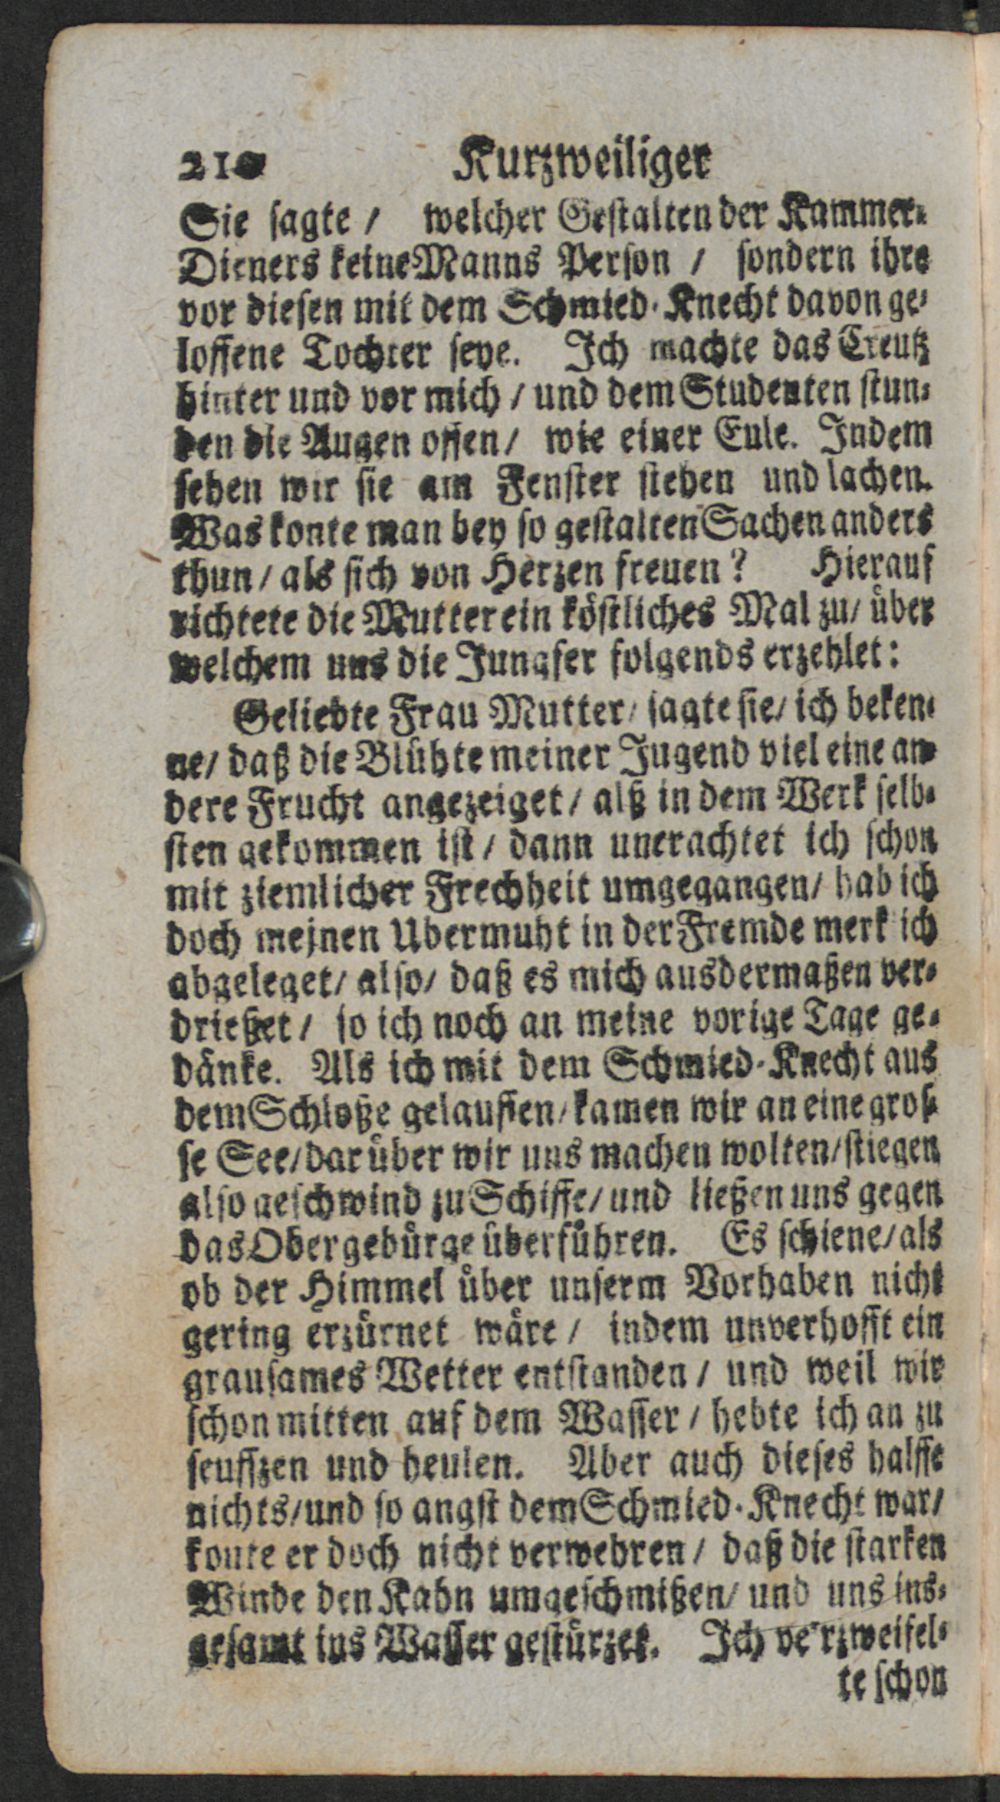 210 Kurzweiliger
Sie ſagte / welcher Geſtalten der Kammer-
Dieners keine Manns Perſon / ſondern ihre
vor dieſen mit dem Schmied-Knecht davon ge-
loffene Tochter ſeye. Ich machte das Creutz
hinter und vor mich / und dem Studenten ſtun-
den die Augen offen / wie einer Eule. Indem
ſehen wir ſie am Fenſter ſtehen und lachen.
Was konte man bey ſo geſtalten Sachen anders
thun / als ſich von Herzen freuen? Hierauf
richtete die Mutter ein köſtliches Mal zu / über
welchem uns die Jungfer folgends erzehlet:
Geliebte Frau Mutter / ſagte ſie / ich beken-
ne / daß die Blühte meiner Jugend viel eine an-
dere Frucht angezeiget / alß in dem Werk ſelb-
ſten gekommen iſt / dann unerachtet ich ſchon
mit ziemlicher Frechheit umgegangen / hab ich
doch meinen Ubermuht in der Fremde merk ich
abgeleget / alſo / daß es mich ausdermaßen ver-
drießet / ſo ich noch an meine vorige Tage ge-
dänke. Als ich mit dem Schmied-Knecht aus
dem Schloße gelauffen / kamen wir an eine groſ-
ſe See / darüber wir uns machen wolten / ſtiegen
alſo geſchwind zu Schiffe / und ließen uns gegen
das Obergebürge überführen. Es ſchiene / als
ob der Himmel über unſerm Vorhaben nicht
gering erzürnet wäre / indem unverhofft ein
grauſames Wetter entſtanden / und weil wir
ſchon mitten auf dem Waſſer / hebte ich an zu
ſeuffzen und heulen. Aber auch dieſes halffe
nichts / und ſo angſt dem Schmied-Knecht war /
konte er doch nicht verwehren / daß die ſtarken
Winde den Kahn umgeſchmißen / und uns ins-
geſamt ins Waſſer geſtürzet. Ich verzweifel-
te ſchon